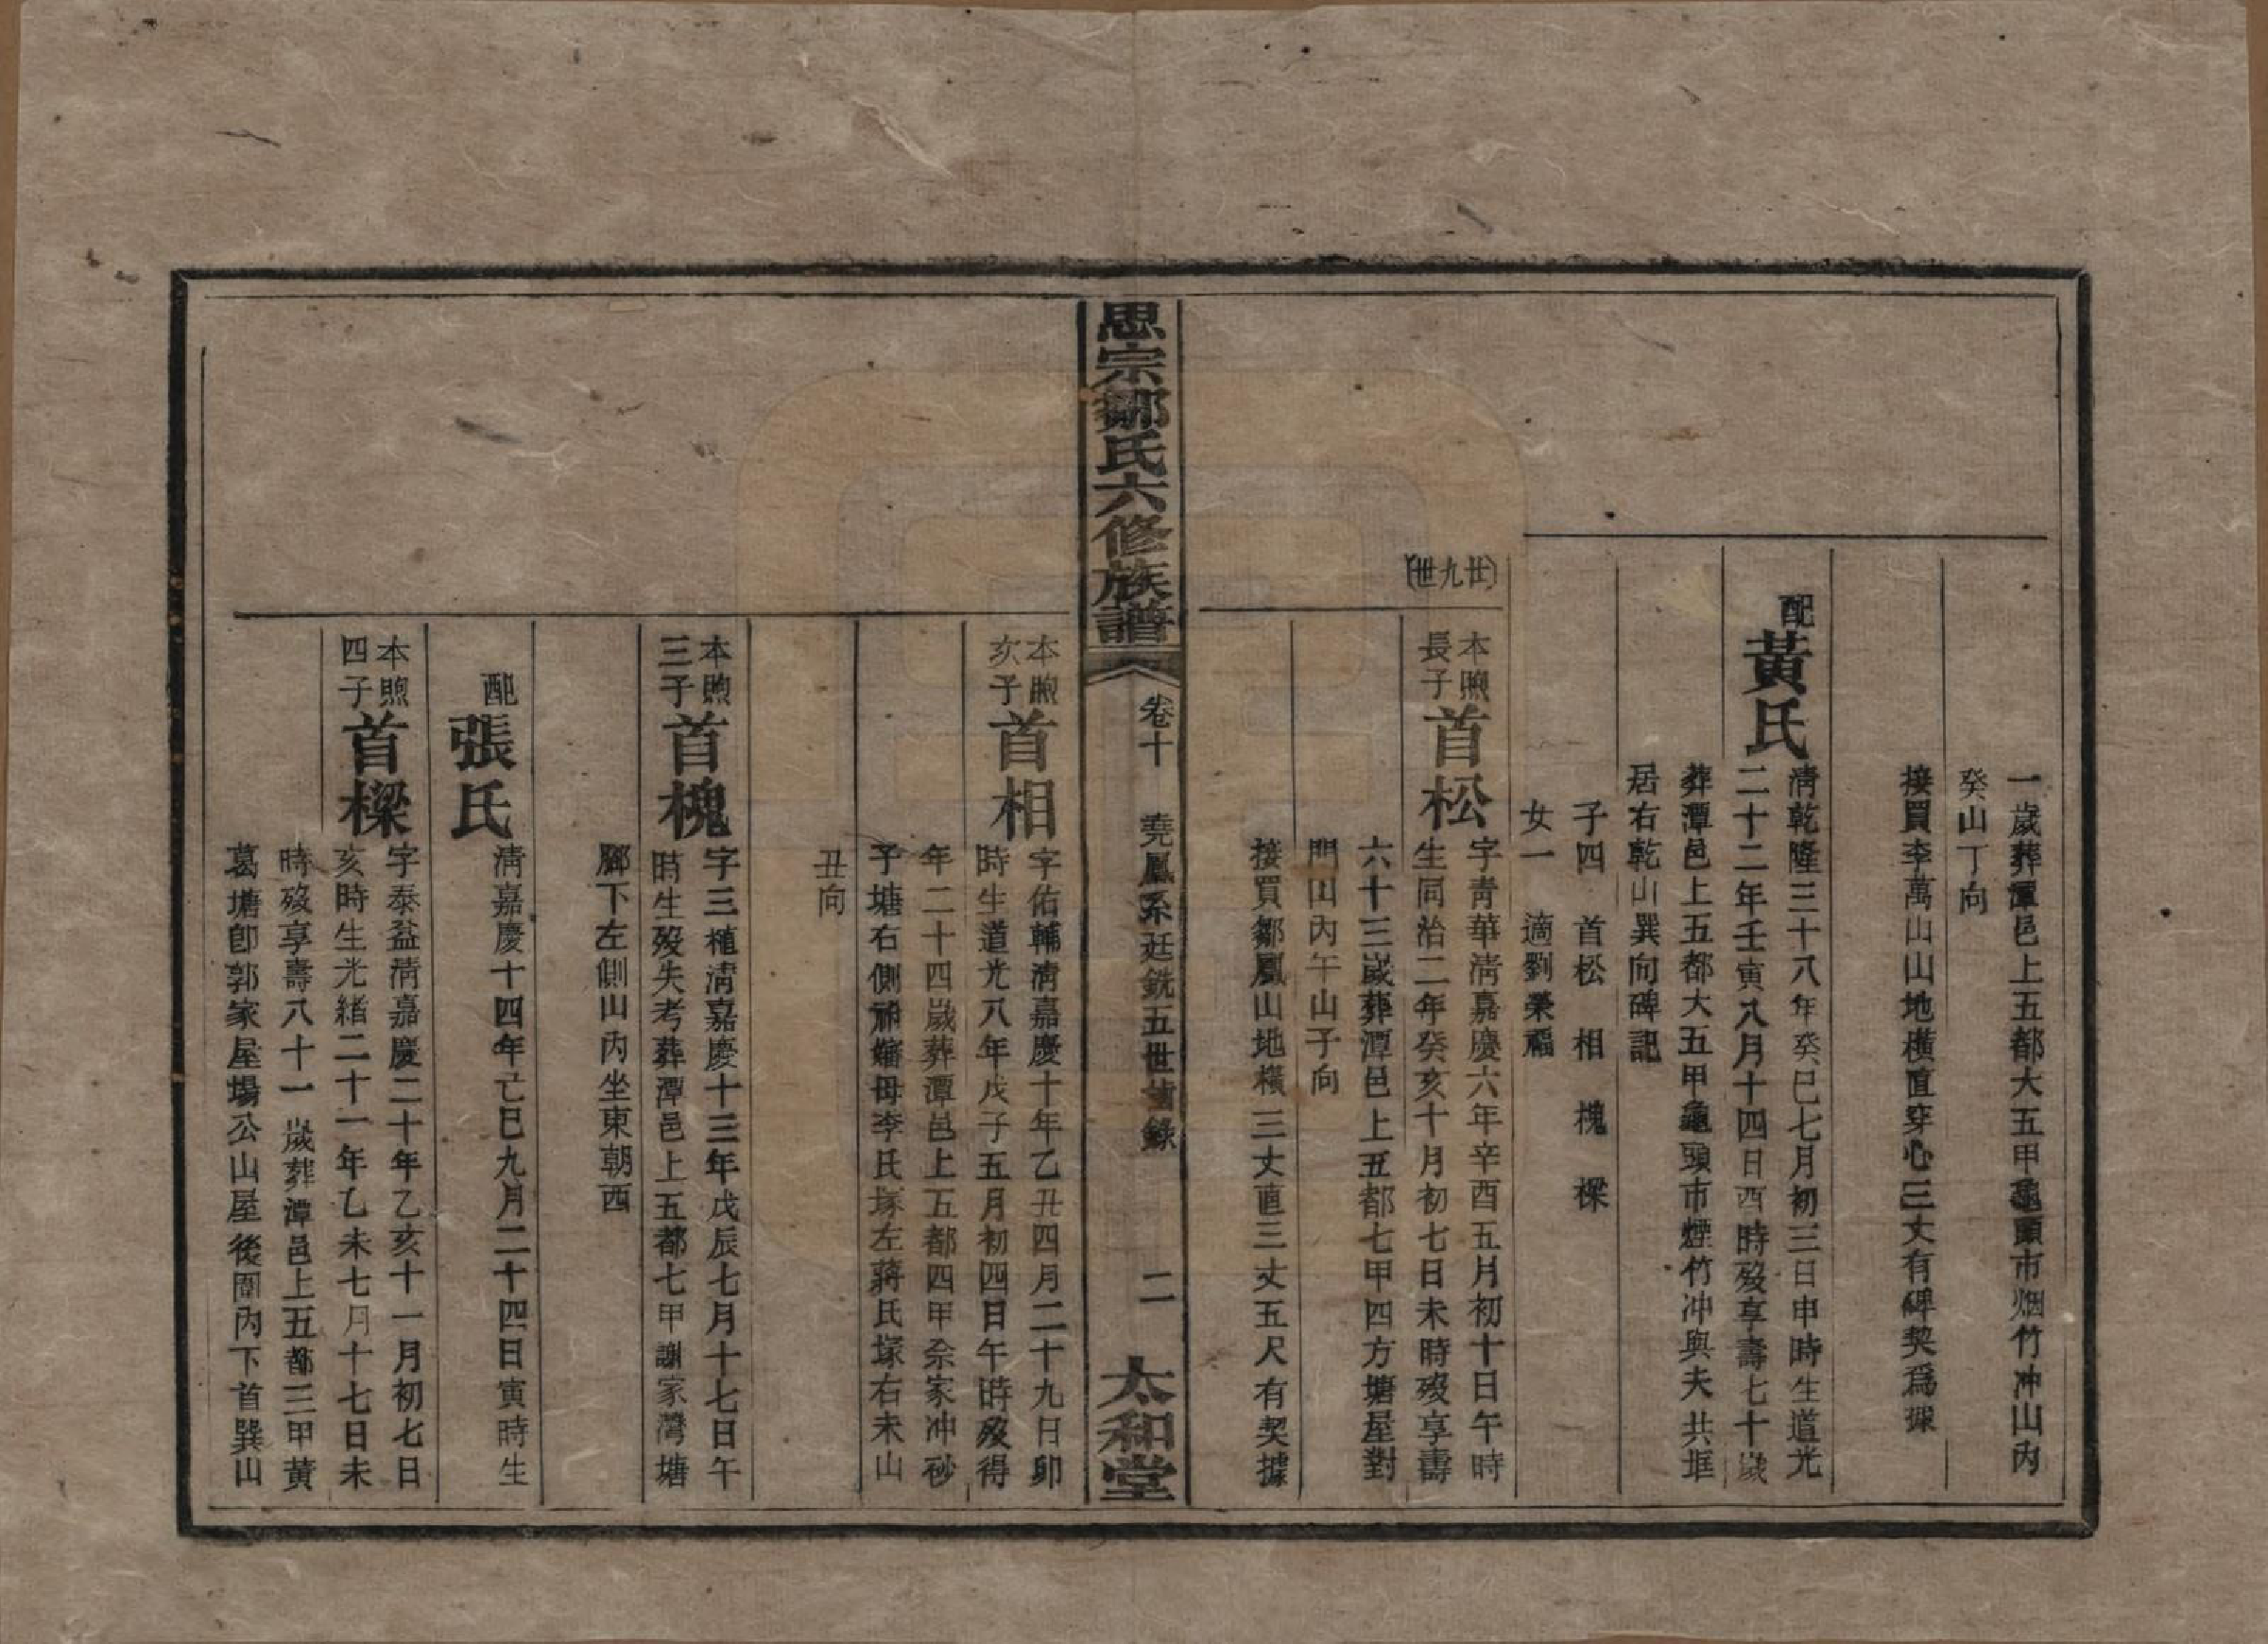 一歲葬潭邑上五都大五甲龜頭市烟竹冲山內
癸山丁向
接買李萬山山地橫直穿心三丈有碑契爲據
配
黃氏
淸乾隆三十八年癸巳七月初三日申時生道光
二十二年壬寅八月十四日酉時歿享壽七十歲
葬潭邑上五都大五甲龜頭市煙竹冲與夫共塋
居右乾山巽向碑記
子四 首松 相 槐 樑
女一 適劉榮福
(廿九世)
本煦
長子
首松
字青華淸嘉慶六年辛酉五月初十日午時
生同治二年癸亥十月初七日未時歿享壽
六十三歲葬潭邑上五都七甲四方塘屋對
門山內午山子向
接買鄒鳳山地橫三丈直三丈五尺有契據
思宗鄒氏六修族譜
卷十
堯鳳系廷銑五世齒錄
二
太和堂
本煦
次子
首相
字佑輔淸嘉慶十年乙丑四月二十九日卯
時生道光八年戊子五月初四日午時歿得
年二十四歲葬潭邑上五都四甲佘家冲砂
子塘右側祔嬸母李氏塚左蔣氏塚右未山
丑向
本煦
三子
首槐
字三植淸嘉慶十三年戊辰七月十七日午
時生歿失考葬潭邑上五都七甲謝家灣塘
腳下左側山內坐東朝西
配
張氏
淸嘉慶十四年己巳九月二十四日寅時生
本煦
四子
首樑
字泰益淸嘉慶二十年乙亥十一月初七日
亥時生光緒二十一年乙未七月十七日未
時歿享壽八十一歲葬潭邑上五都三甲黃
葛塘卽郭家屋場公山屋後圍內下首巽山